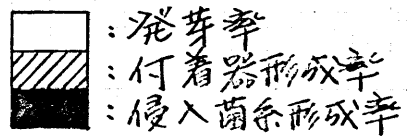 ：発芽率
：付着器形成率
：侵入菌糸形成率